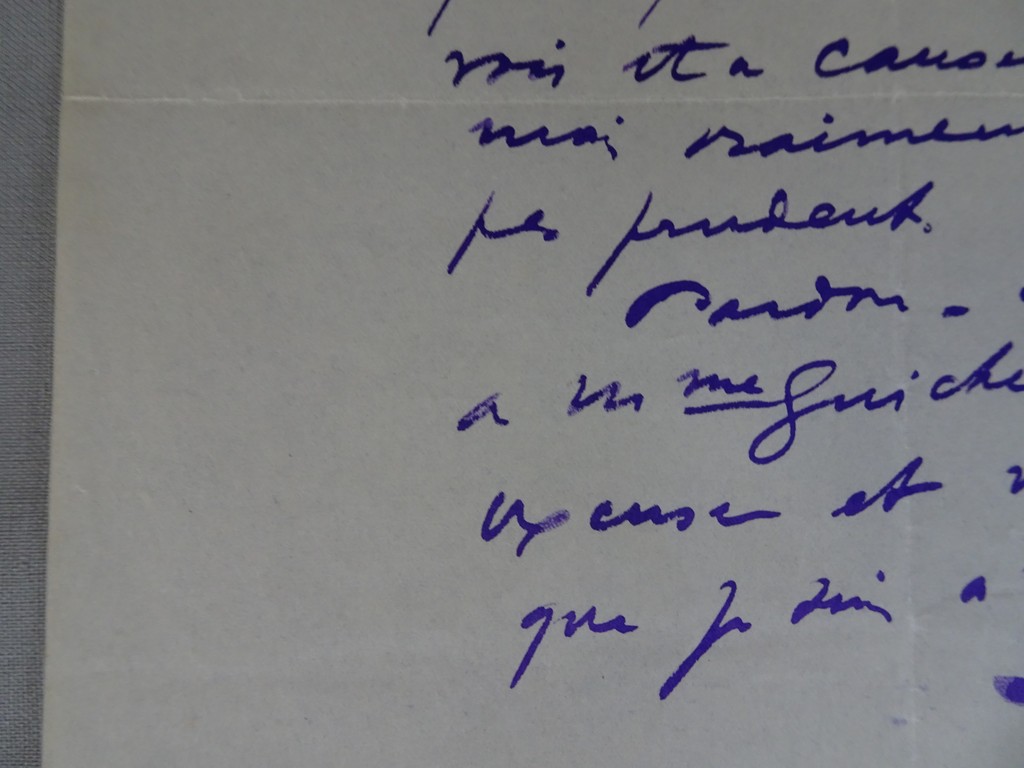 voir et a cause
moi vraimen
pas prudent.
Pardon -
a M me Guiche
excuse et
que je suis a